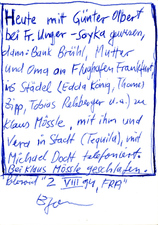 Heute mit Günter Olbert
bei Fr. Unger-Soyka gewesen,
dann: Bank Brühl, Mutter
und Oma am Flughafen Frankfurt,
ins Städel (Edda König, Thomas
Zipp, Tobias Rehberger u.a.) zu
Klaus Mössle, mit ihm und
Vera in Stadt (Tequila), mit
Michael Dodt telefoniert.
Bei Klaus Mössle geschlafen.
"2 VIII 94, FRA"